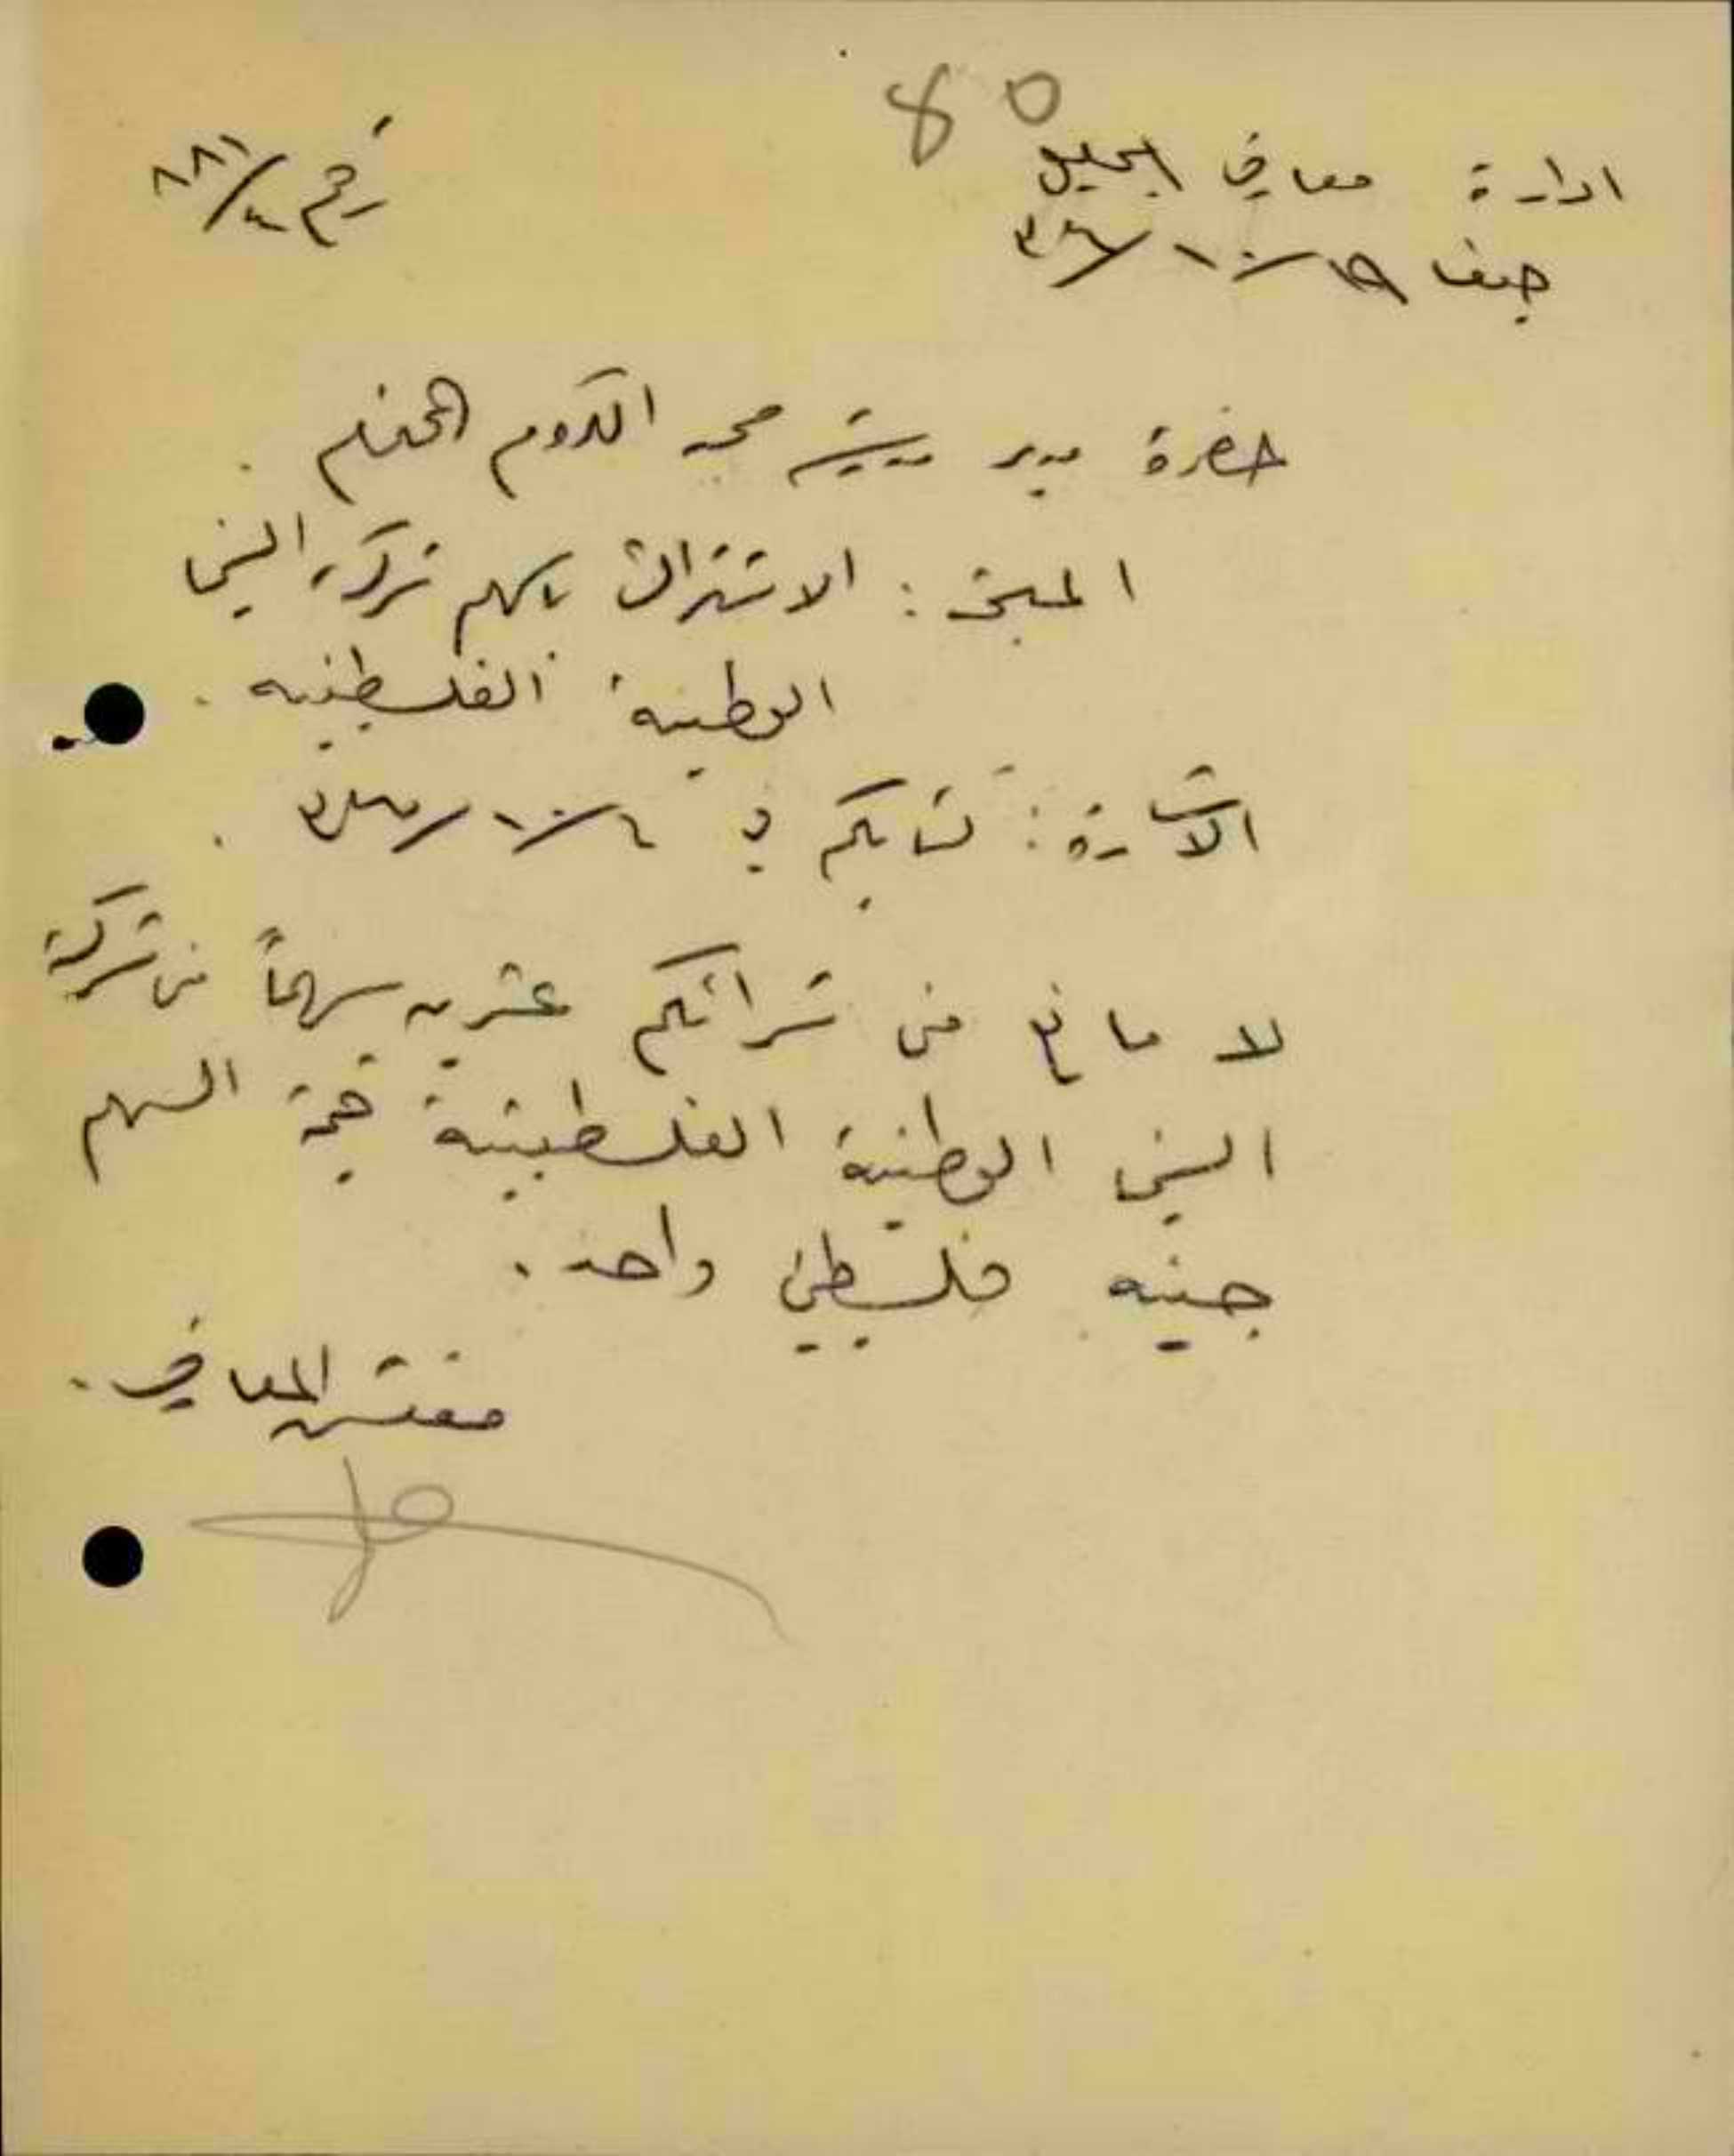 80
ادارة معارف الجليل
رقم ٨٨١/٤
حيفا ١٩/١٠/٣٤
حضرة مدير مدرسة مجد الكروم المحترم .
المبحث : الاشتراك باسهم شركة السينما
الوطنية الفلسطينية .
الاشارة : كتابكم في ١٠/٦/
لا مانع من شرائكم عشرين سهماً من شركة
السينما الوطنية الفلسطينية قيمة السهم
جنيه فلسطيني واحد .
مفتش المعارف .